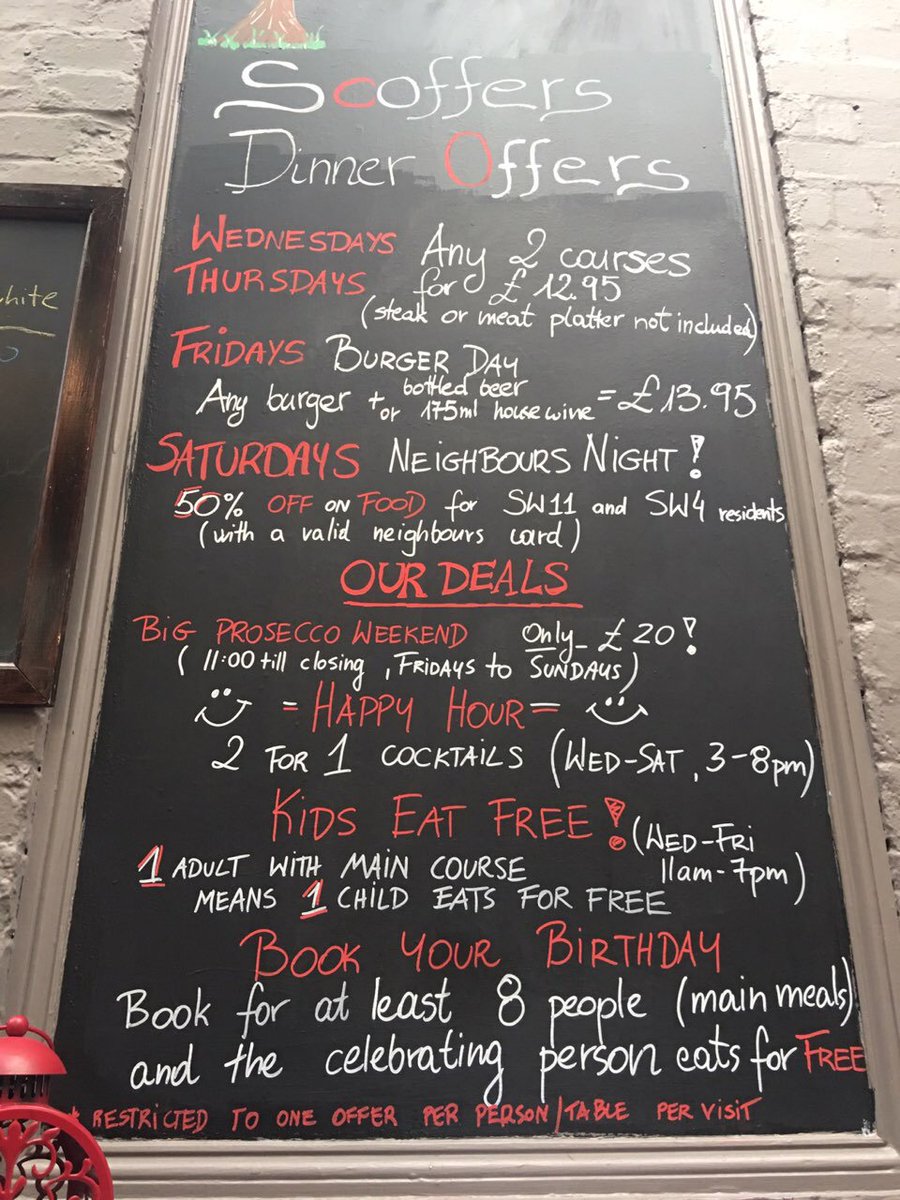 Scoffers
Dinner Offers
WEDNESDAYS Any 2 courses
THURSDAYS for £12.95
(steak or meat platter not included)
FRIDAYS BURGER DAY
Any burger + bottled beer or 175ml house wine = £13.95
SATURDAYS NEIGHBOURS NIGHT!
50% OFF ON FOOD for SW11 and SW4 residents
(with a valid neighbours card)
OUR DEALS
BIG PROSECCO WEEKEND Only £20!
(11:00 till closing, FRIDAYS to SUNDAYS)
= HAPPY HOUR =
2 FOR 1 COCKTAILS (WED-SAT, 3-8pm)
KIDS EAT FREE! (WED-FRI
11am-7pm)
1 ADULT WITH MAIN COURSE
MEANS 1 CHILD EATS FOR FREE
BOOK YOUR BIRTHDAY
Book for at least 8 people (main meals)
and the celebrating person eats for FREE
* RESTRICTED TO ONE OFFER PER PERSON/TABLE PER VISIT